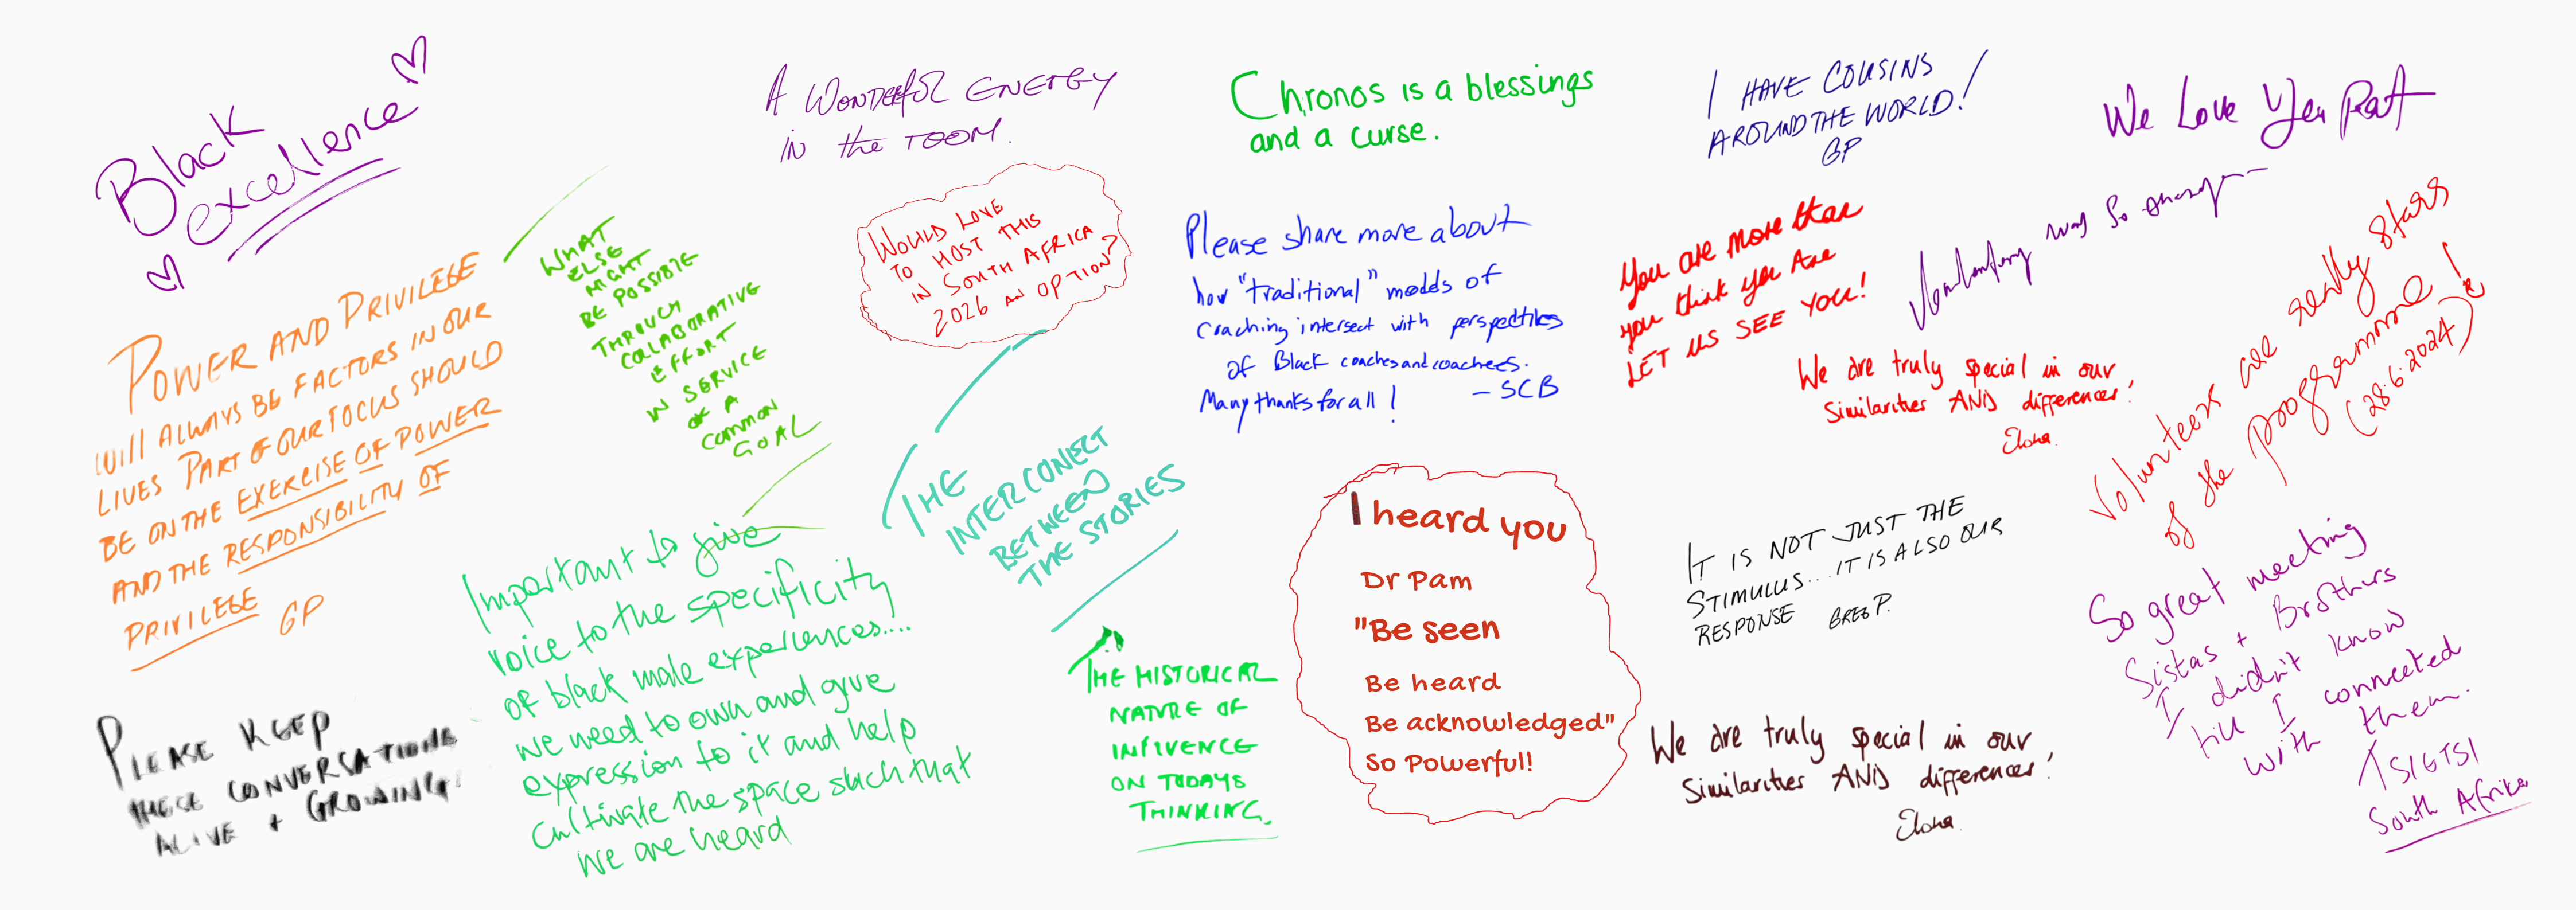 Black
excellence
A WONDERFUL ENERGY
in the room.
Chronos is a blessings
and a curse.
I HAVE COUSINS
AROUND THE WORLD!
GP
We Love You
POWER AND PRIVILEGE
WILL ALWAYS BE FACTORS IN OUR
LIVES PART OF OUR FOCUS SHOULD
BE ON THE EXERCISE OF POWER
AND THE RESPONSIBILITY OF
PRIVILEGE
GP
WHAT
ELSE
MIGHT
BE POSSIBLE
THROUGH
COLLABORATIVE
EFFORT
IN SERVICE
OF A
COMMON
GOAL
WOULD LOVE
TO HOST THIS
IN SOUTH AFRICA
2026 AN OPTION?
Please share more about
how "traditional" models of
Coaching intersect with perspectives
of Black coaches and coachees.
Many thanks for all!
- SCB
You are more than
you think you are
LET US SEE YOU!
was so
We are truly special in our
Similarities AND differences!
Volunteers are really stars
of the programme!
(28.6.2024)
THE
INTERCONECT
BETWEEN
THE STORIES
Important to give
voice to the specificity
of black male experiences....
we need to own and give
expression to it and help
cultivate the space such that
we are heard
PLEASE KEEP
THESE CONVERSATIONS
ALIVE + GROWING!
THE HISTORICAL
NATURE OF
INFLUENCE
ON TODAYS
THINKING.
I heard you
Dr Pam
"Be seen
Be heard
Be acknowledged"
So Powerful!
IT IS NOT JUST THE
STIMULUS... IT IS ALSO OUR
RESPONSE GREG P.
We are truly special in our
Similarities AND differences!
So great meeting
Sistas + Brothers
I didn't know
till I connected
with them.
TSIETSI
South Afrika